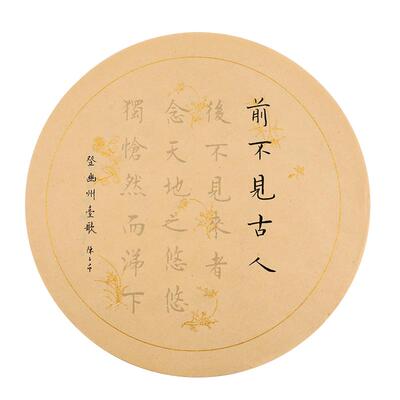 前不見古人
後不見來者
念天地之悠悠
獨愴然而涕下
登幽州臺歌 陳子昂